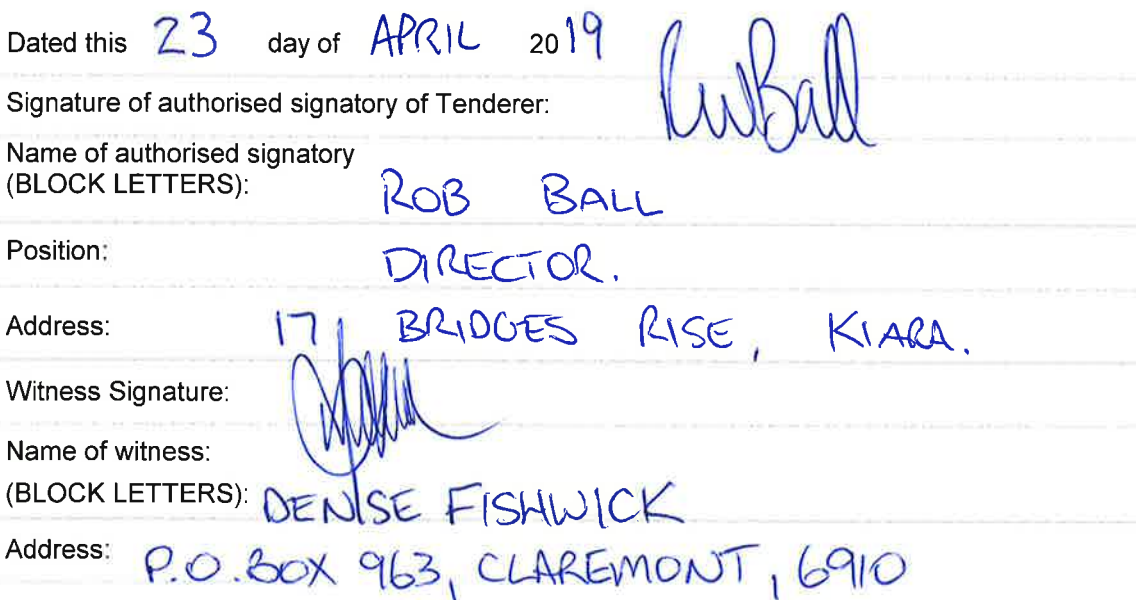 Dated this 23 day of APRIL 2019
Signature of authorised signatory of Tenderer: RWBall
Name of authorised signatory
(BLOCK LETTERS): ROB BALL
Position: DIRECTOR.
Address: 17 BRIDGES RISE, KIARA.
Witness Signature:
Name of witness:
(BLOCK LETTERS): DENISE FISHWICK
Address: P.O. BOX 963, CLAREMONT, 6910